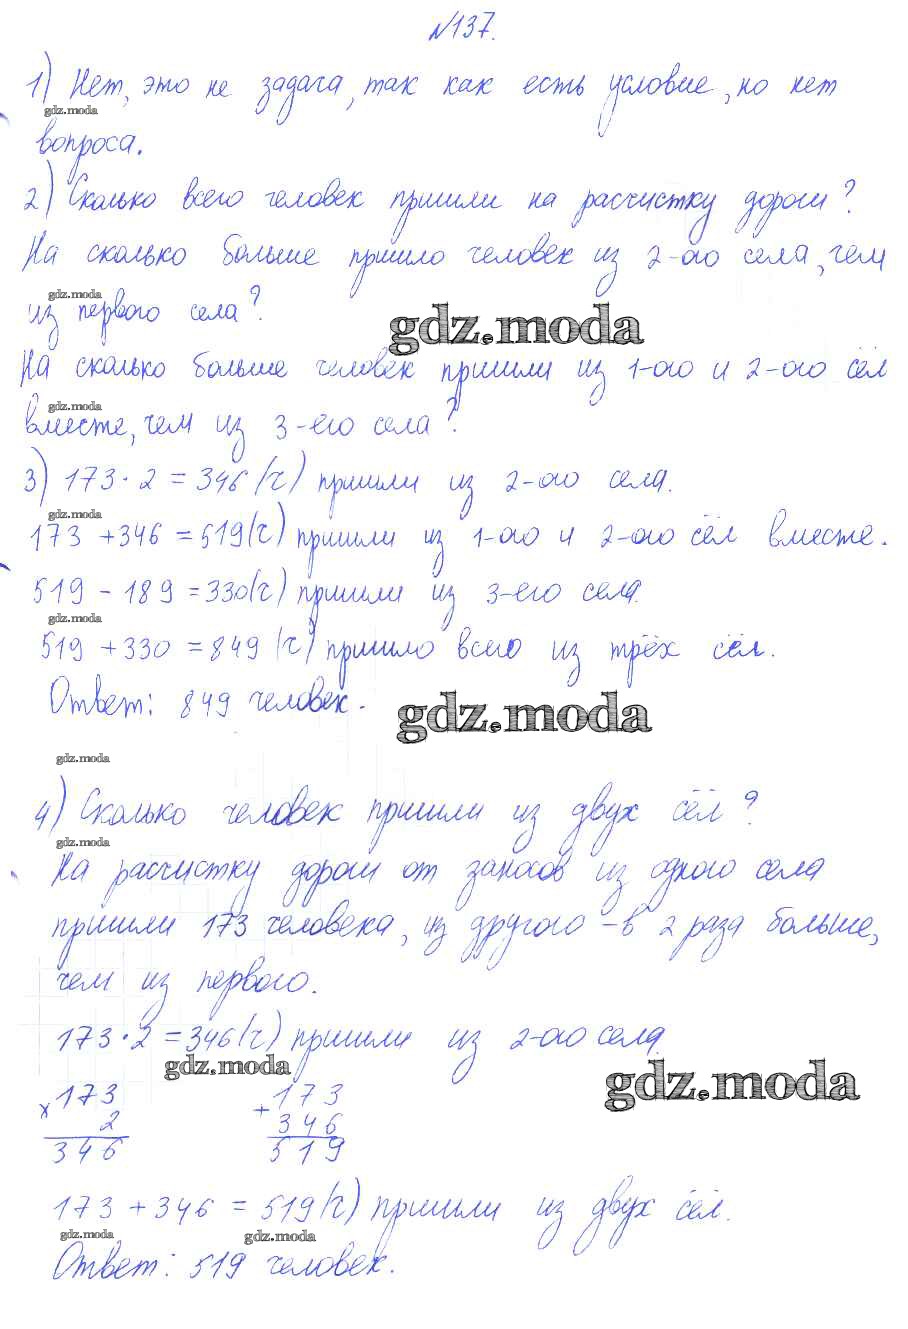 №137.
1) Нет, это не задача, так как есть условие, но нет
gdz.moda
вопроса.
2) Сколько всего человек пришли на расчистку дороги?
На сколько больше пришло человек из 2-ого села, чем
gdz.moda
из первого села?
gdz.moda
На сколько больше человек пришли из 1-ого и 2-ого сёл
gdz.moda
вместе, чем из 3-его села?
3) 173·2 = 346 (ч) пришли из 2-ого села.
gdz.moda
173 + 346 = 519 (ч) пришли из 1-ого и 2-ого сёл вместе.
519 - 189 = 330 (ч) пришли из 3-его села.
gdz.moda
519 + 330 = 849 (ч) пришло всего из трёх сёл.
Ответ: 849 человек.
gdz.moda
gdz.moda
4) Сколько человек пришли из двух сёл?
gdz.moda
На расчистку дороги от заносов из одного села
пришли 173 человека, из другого - в 2 раза больше,
чем из первого.
173·2 = 346 (ч) пришли из 2-ого села.
gdz.moda
gdz.moda
× 173 + 173
2 346
346 519
173 + 346 = 519 (ч) пришли из двух сёл.
gdz.moda gdz.moda
Ответ: 519 человек.